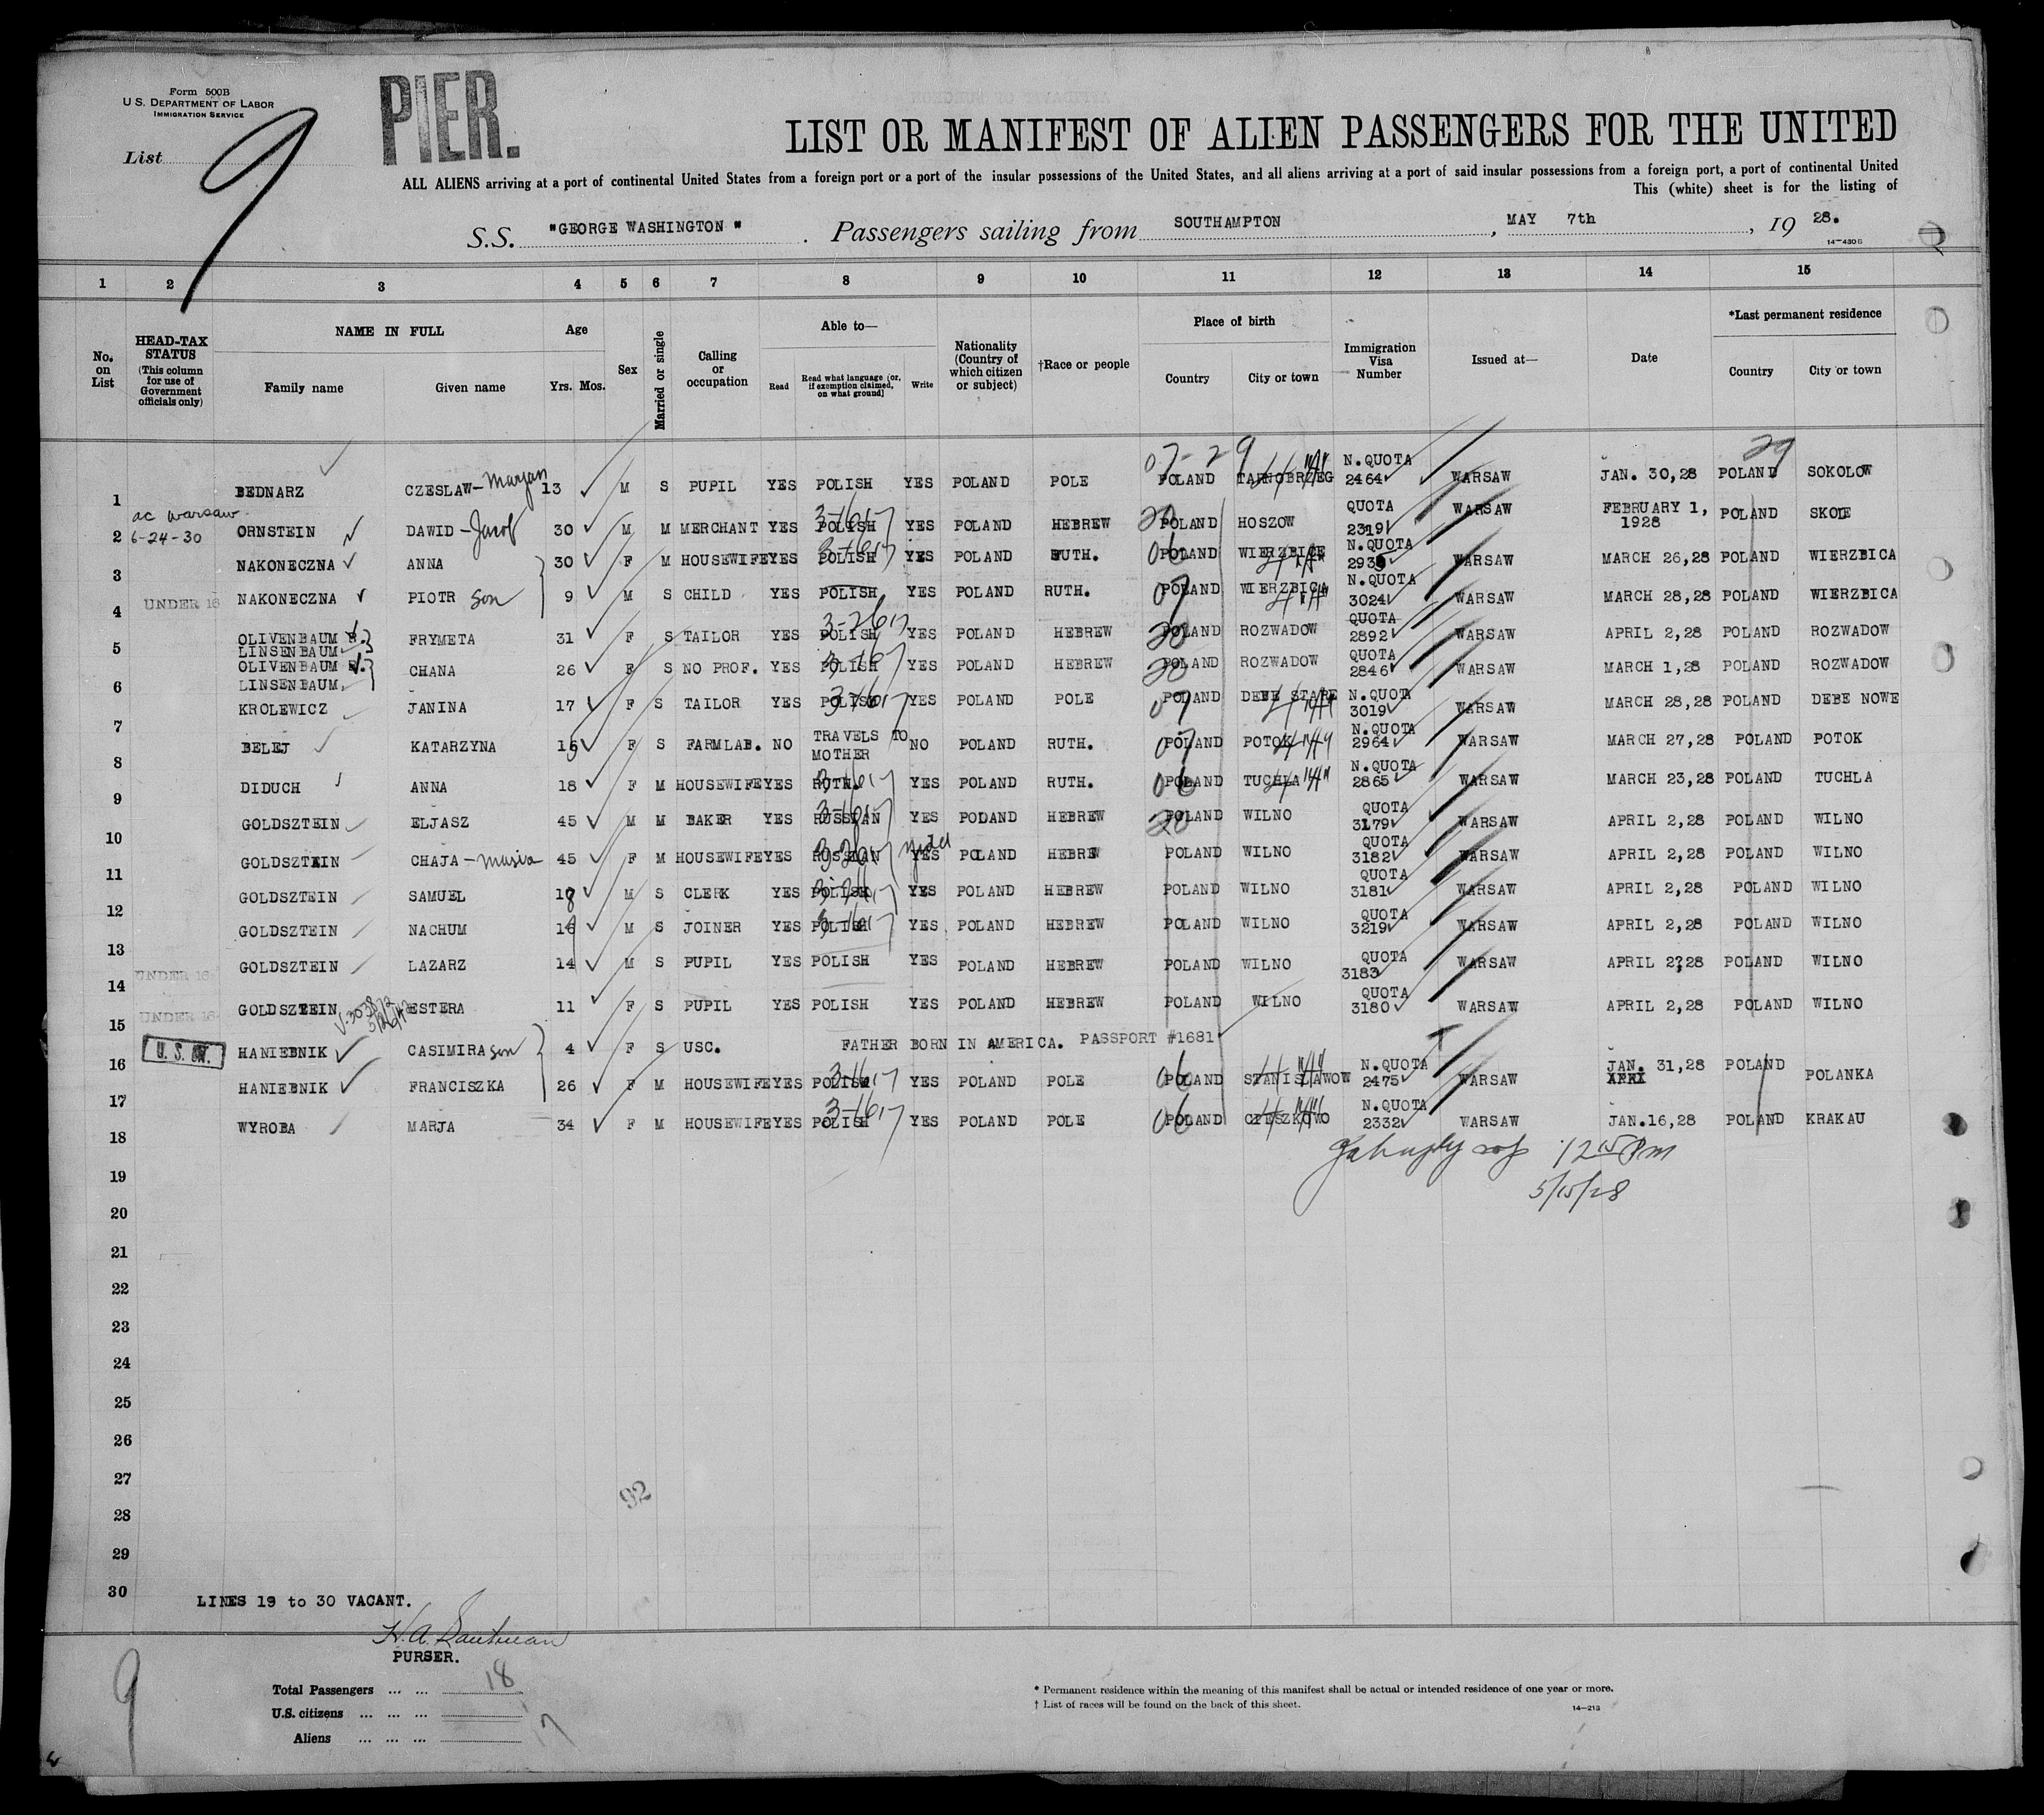 Form 500B
U. S. DEPARTMENT OF LABOR
IMMIGRATION SERVICE
List 9
PIER.
LIST OR MANIFEST OF ALIEN PASSENGERS FOR THE UNITED
ALL ALIENS arriving at a port of continental United States from a foreign port or a port of the insular possessions of the United States, and all aliens arriving at a port of said insular possessions from a foreign port, a port of continental United
This (white) sheet is for the listing of
S.S. "GEORGE WASHINGTON" . Passengers sailing from SOUTHAMPTON , MAY 7th , 19 28.
14-430B
1 2 3 4 5 6 7 8 9 10 11 12 13 14 15
No. on List
HEAD-TAX STATUS (This column for use of Government officials only)
NAME IN FULL
Family name Given name
Age
Yrs. Mos.
Sex
Married or single
Calling or occupation
Able to—
Read
Read what language (or, if exemption claimed, on what ground)
Write
Nationality (Country of which citizen or subject)
†Race or people
Place of birth
Country City or town
Immigration Visa Number
Issued at—
Date
*Last permanent residence
Country City or town
07-29 29
1 BEDNARZ CZESLAW-Maryan 13 M S PUPIL YES POLISH YES POLAND POLE POLAND TARNOBRZEG N.QUOTA 2464 WARSAW JAN. 30,28 POLAND SOKOLOW
ac Warsaw
2 6-24-30 ORNSTEIN DAWID-Jacob 30 M M MERCHANT YES POLISH YES POLAND HEBREW POLAND HOSZOW QUOTA 2319 WARSAW FEBRUARY 1, 1928 POLAND SKOLE
3 NAKONECZNA ANNA 30 F M HOUSEWIFE YES POLISH YES POLAND RUTH. POLAND WIERZBICE N.QUOTA 2939 WARSAW MARCH 26,28 POLAND WIERZBICA
4 UNDER 16 NAKONECZNA PIOTR son 9 M S CHILD YES POLISH YES POLAND RUTH. POLAND WIERZBICA N.QUOTA 3024 WARSAW MARCH 28,28 POLAND WIERZBICA
5 OLIVENBAUM LINSENBAUM FRYMETA 31 F S TAILOR YES POLISH YES POLAND HEBREW POLAND ROZWADOW QUOTA 2892 WARSAW APRIL 2,28 POLAND ROZWADOW
6 OLIVENBAUM LINSENBAUM CHANA 26 F S NO PROF. YES POLISH YES POLAND HEBREW POLAND ROZWADOW QUOTA 2846 WARSAW MARCH 1,28 POLAND ROZWADOW
7 KROLEWICZ JANINA 17 F S TAILOR YES POLISH YES POLAND POLE POLAND DEBE STARE N.QUOTA 3019 WARSAW MARCH 28,28 POLAND DEBE NOWE
8 BELEJ KATARZYNA 16 F S FARMLAB. NO TRAVELS TO MOTHER NO POLAND RUTH. POLAND POTOK N.QUOTA 2964 WARSAW MARCH 27,28 POLAND POTOK
9 DIDUCH ANNA 18 F M HOUSEWIFE YES RUTH. YES POLAND RUTH. POLAND TUCHLA N.QUOTA 2865 WARSAW MARCH 23,28 POLAND TUCHLA
10 GOLDSZTEIN ELJASZ 45 M M BAKER YES RUSSIAN YES POLAND HEBREW POLAND WILNO QUOTA 3179 WARSAW APRIL 2,28 POLAND WILNO
11 GOLDSZTEIN CHAJA-Musia 45 F M HOUSEWIFE YES RUSSIAN YES POLAND HEBREW POLAND WILNO QUOTA 3182 WARSAW APRIL 2,28 POLAND WILNO
12 GOLDSZTEIN SAMUEL 18 M S CLERK YES POLISH YES POLAND HEBREW POLAND WILNO QUOTA 3181 WARSAW APRIL 2,28 POLAND WILNO
13 GOLDSZTEIN NACHUM 16 M S JOINER YES POLISH YES POLAND HEBREW POLAND WILNO QUOTA 3219 WARSAW APRIL 2,28 POLAND WILNO
14 UNDER 16 GOLDSZTEIN LAZARZ 14 M S PUPIL YES POLISH YES POLAND HEBREW POLAND WILNO QUOTA 3183 WARSAW APRIL 2,28 POLAND WILNO
15 UNDER 16 GOLDSZTEIN ESTERA 11 F S PUPIL YES POLISH YES POLAND HEBREW POLAND WILNO QUOTA 3180 WARSAW APRIL 2,28 POLAND WILNO
16 HANIEBNIK CASIMIRA son 4 F S USC. FATHER BORN IN AMERICA. PASSPORT #1681
17 HANIEBNIK FRANCISZKA 26 F M HOUSEWIFE YES POLISH YES POLAND POLE POLAND STANISLAWOW N.QUOTA 2475 WARSAW JAN. 31,28 POLAND POLANKA
18 WYROBA MARJA 34 F M HOUSEWIFE YES POLISH YES POLAND POLE POLAND CIESZKOWO N.QUOTA 2332 WARSAW JAN.16,28 POLAND KRAKAU
12 15 Pm
19 5/15/28
20
21
22
23
24
25
26
27
92
28
29
30
LINES 19 to 30 VACANT.
PURSER.
Total Passengers ... ... 18
U.S. citizens ... ... ...
Aliens ... ... ... 17
9
* Permanent residence within the meaning of this manifest shall be actual or intended residence of one year or more.
† List of races will be found on the back of this sheet.
14-213